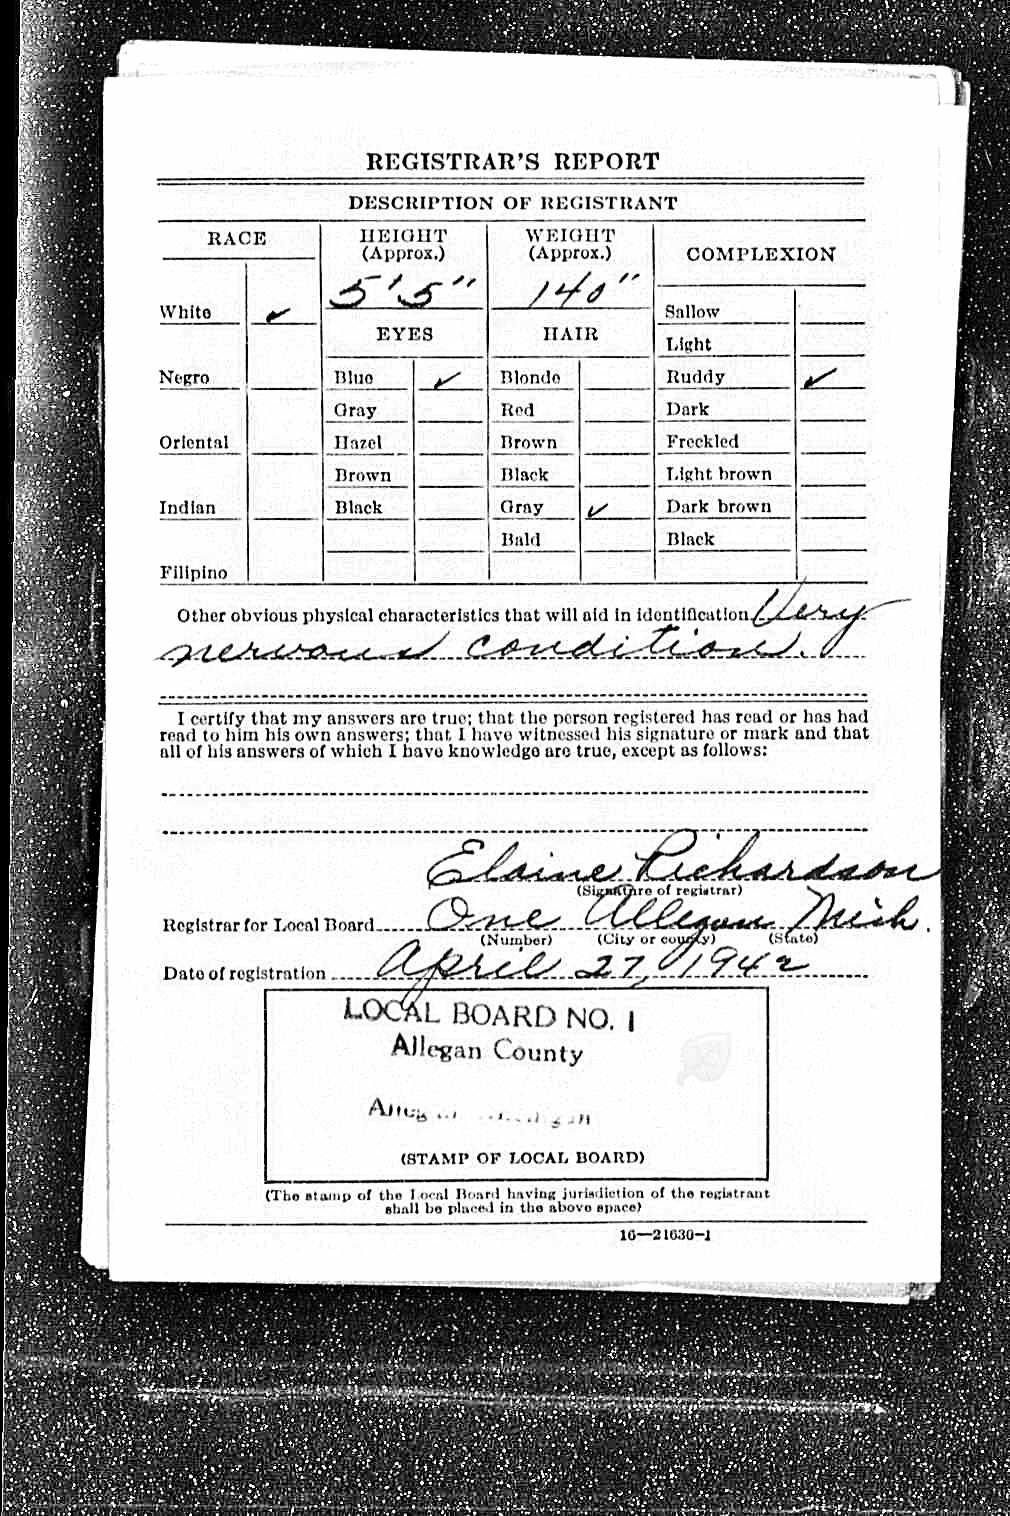 REGISTRAR'S REPORT
DESCRIPTION OF REGISTRANT
RACE
HEIGHT
(Approx.)
WEIGHT
(Approx.)
COMPLEXION
5'5" 140"
White ✓
Sallow
EYES HAIR
Light
Negro
Blue ✓
Blonde
Ruddy ✓
Gray
Red
Dark
Oriental
Hazel
Brown
Freckled
Brown
Black
Light brown
Indian
Black
Gray ✓
Dark brown
Bald
Black
Filipino
Other obvious physical characteristics that will aid in identification Very
nervous condition.
I certify that my answers are true; that the person registered has read or has had
read to him his own answers; that I have witnessed his signature or mark and that
all of his answers of which I have knowledge are true, except as follows:
Elaine Richardson
(Signature of registrar)
Registrar for Local Board One Allegan Mich.
(Number) (City or county) (State)
Date of registration April 27, 1942
LOCAL BOARD NO. 1
Allegan County
(STAMP OF LOCAL BOARD)
(The stamp of the Local Board having jurisdiction of the registrant
shall be placed in the above space)
16—21630-1